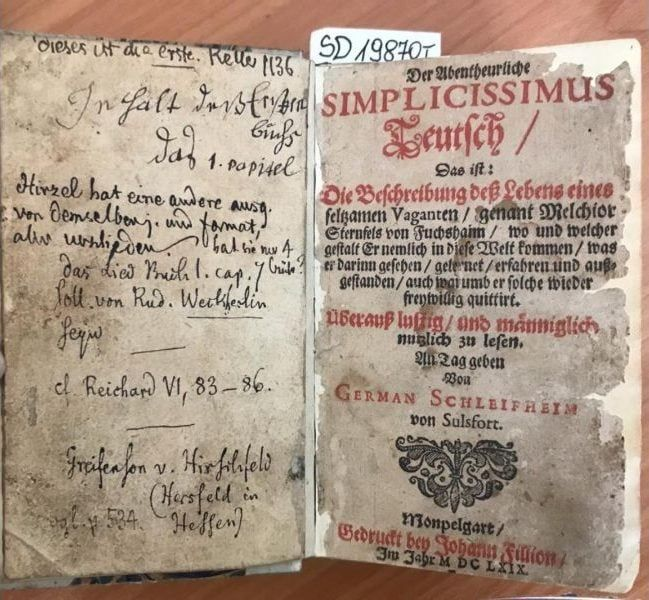 dieses ist die erste. Keller 1136
Inhalt deß Ersten
buchs
das 1. capitel
Hirzel hat eine andere ausg.
von demselben j. und format,
aber verschieden
hat sie nur 4
das Lied Buch 1. cap. 7
soll von Rud. Weckherlin
seyn
cf. Reichard VI, 83-86.
Greifenson v. Hirschfeld
(Hersfeld in
Hessen)
vgl. p. 534.
SD 19870
Der Abentheurliche
SIMPLICISSIMUS
Teutsch /
Das ist:
Die Beschreibung deß Lebens eines
seltzamen Vaganten / genant Melchior
Sternfels von Fuchshaim / wo und welcher
gestalt Er nemlich in diese Welt kommen / was
er darinn gesehen / gelernet / erfahren und auß-
gestanden / auch warumb er solche wieder
freywillig quittirt.
Überauß lustig / und männiglich
nutzlich zu lesen.
An Tag geben
Von
GERMAN SCHLEIFHEIM
von Sulsfort.
Monpelgart /
Gedruckt bey Johann Fillion /
Im Jahr M DC LXIX.